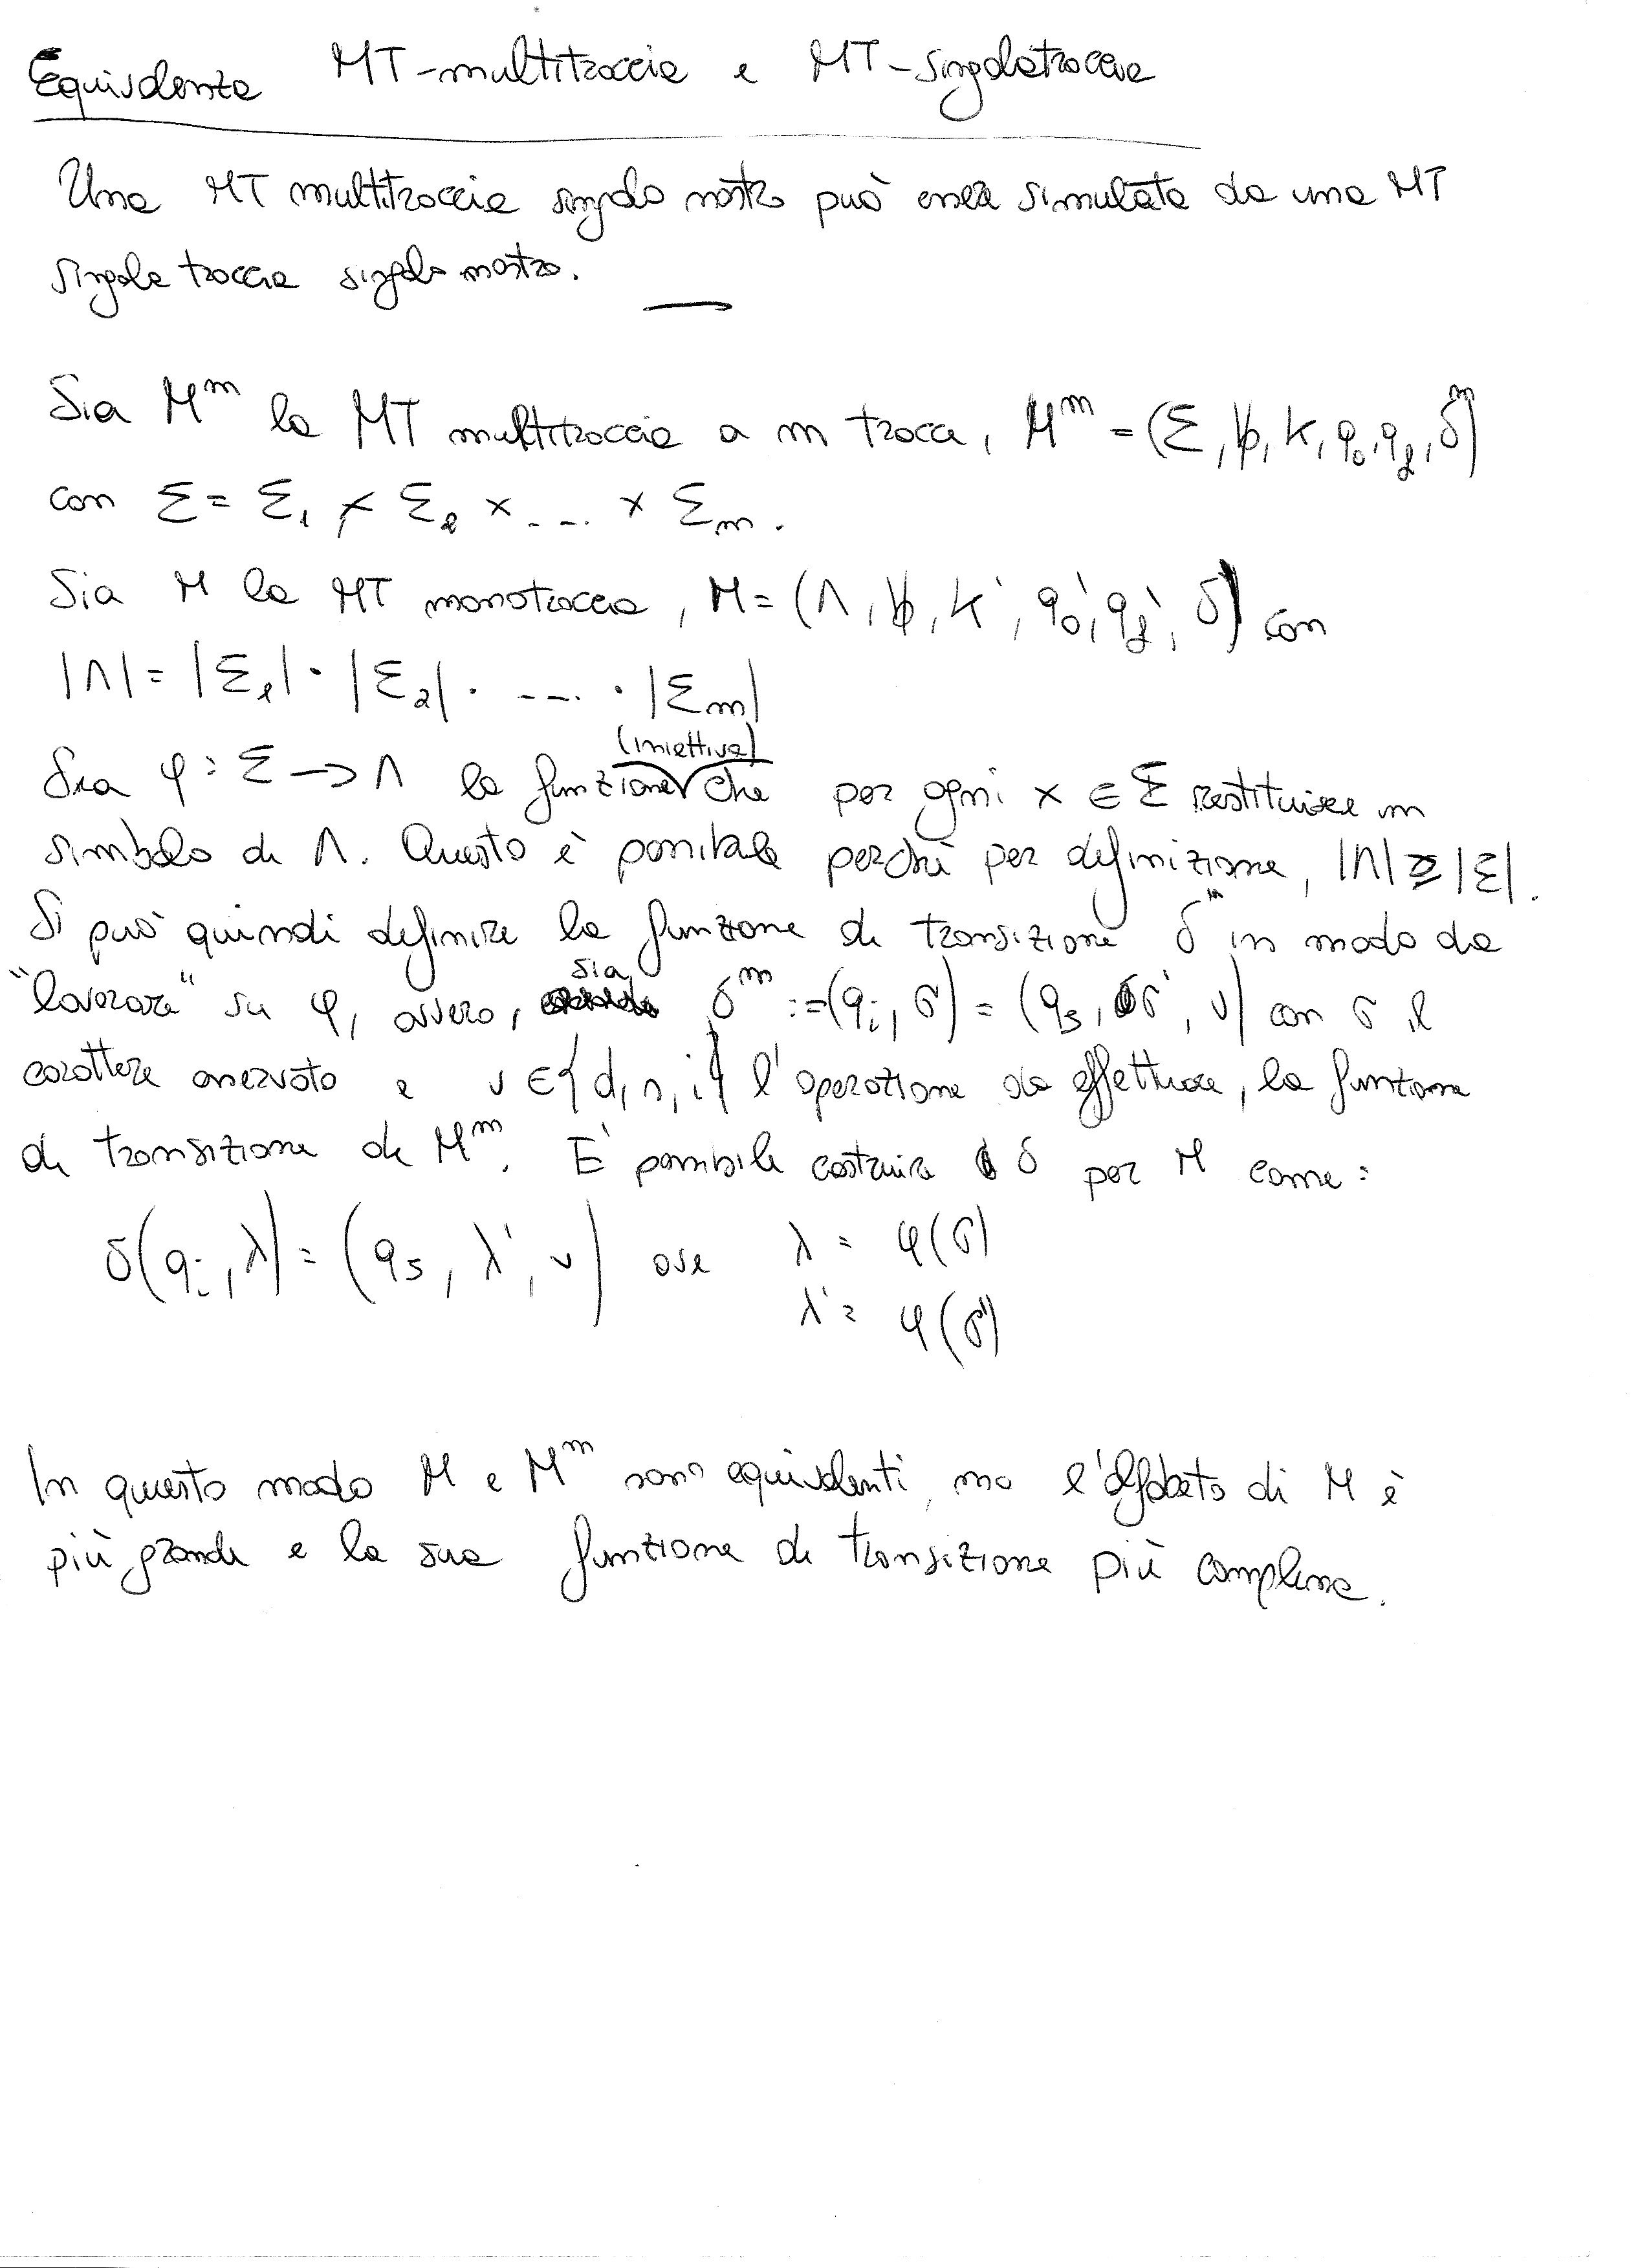 Equivalenza MT-multitraccia e MT-singolatraccia
Una MT multitraccia singolo nastro può essere simulata da una MT
singola traccia singolo nastro.
Sia Mᵐ la MT multitraccia a m tracce, Mᵐ = (Σ, ƀ, K, q₀, qf, δᵐ)
con Σ = Σ₁ × Σ₂ × ... × Σm.
Sia M la MT monotraccia, M = (Λ, ƀ, K', q₀', qf', δ) con
|Λ| = |Σ₁| · |Σ₂| · ... · |Σm|
(iniettiva)
Sia φ : Σ → Λ la funzione che per ogni x ∈ Σ restituisce un
simbolo di Λ. Questo è possibile perchè per definizione, |Λ| ≥ |Σ|.
Si può quindi definire la funzione di transizione δᵐ in modo da
"lavorare" su φ, ovvero, sia δᵐ := (qi, σ) = (qs, σ', v) con σ il
carattere osservato e v ∈ {d, s, i} l'operazione da effettuare, la funzione
di transizione di Mᵐ. E' possibile costruire δ per M come:
δ(qi, λ) = (qs, λ', v) ove λ = φ(σ)
λ' = φ(σ')
In questo modo M e Mᵐ sono equivalenti, ma l'alfabeto di M è
più grande e la sua funzione di transizione più complessa.